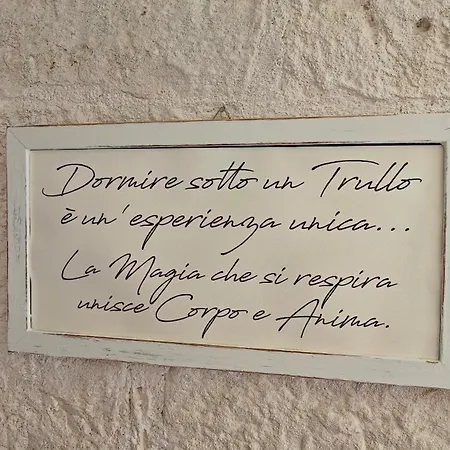 Dormire sotto un Trullo
è un'esperienza unica...
La Magia che si respira
unisce Corpo e Anima.